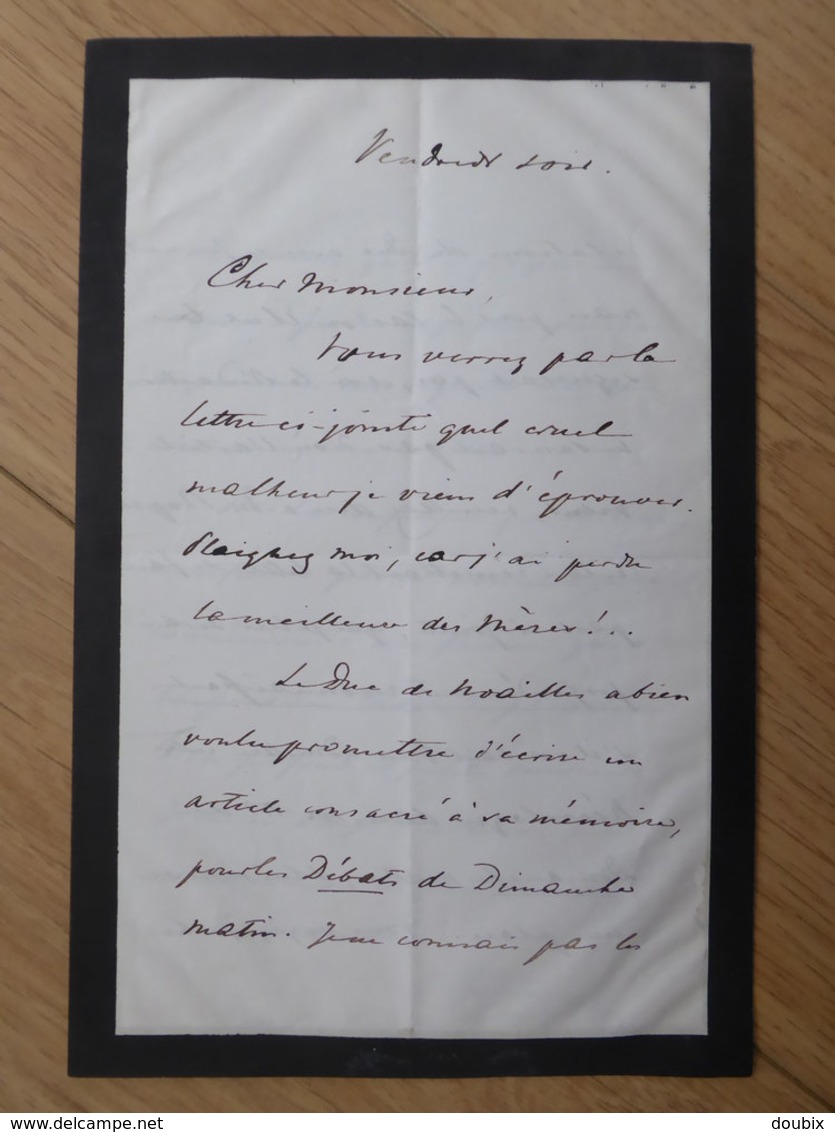 Vendredi soir.
Cher Monsieur,
Vous verrez par la
lettre ci-jointe quel cruel
malheur je viens d'éprouver.
Plaignez moi, car j'ai perdu
la meilleure des Mères!..
Le Duc de Noailles a bien
voulu promettre d'écrire un
article consacré à sa mémoire,
pour les Débats de Dimanche
matin. Je ne connais pas les
delcampe.net
doubix